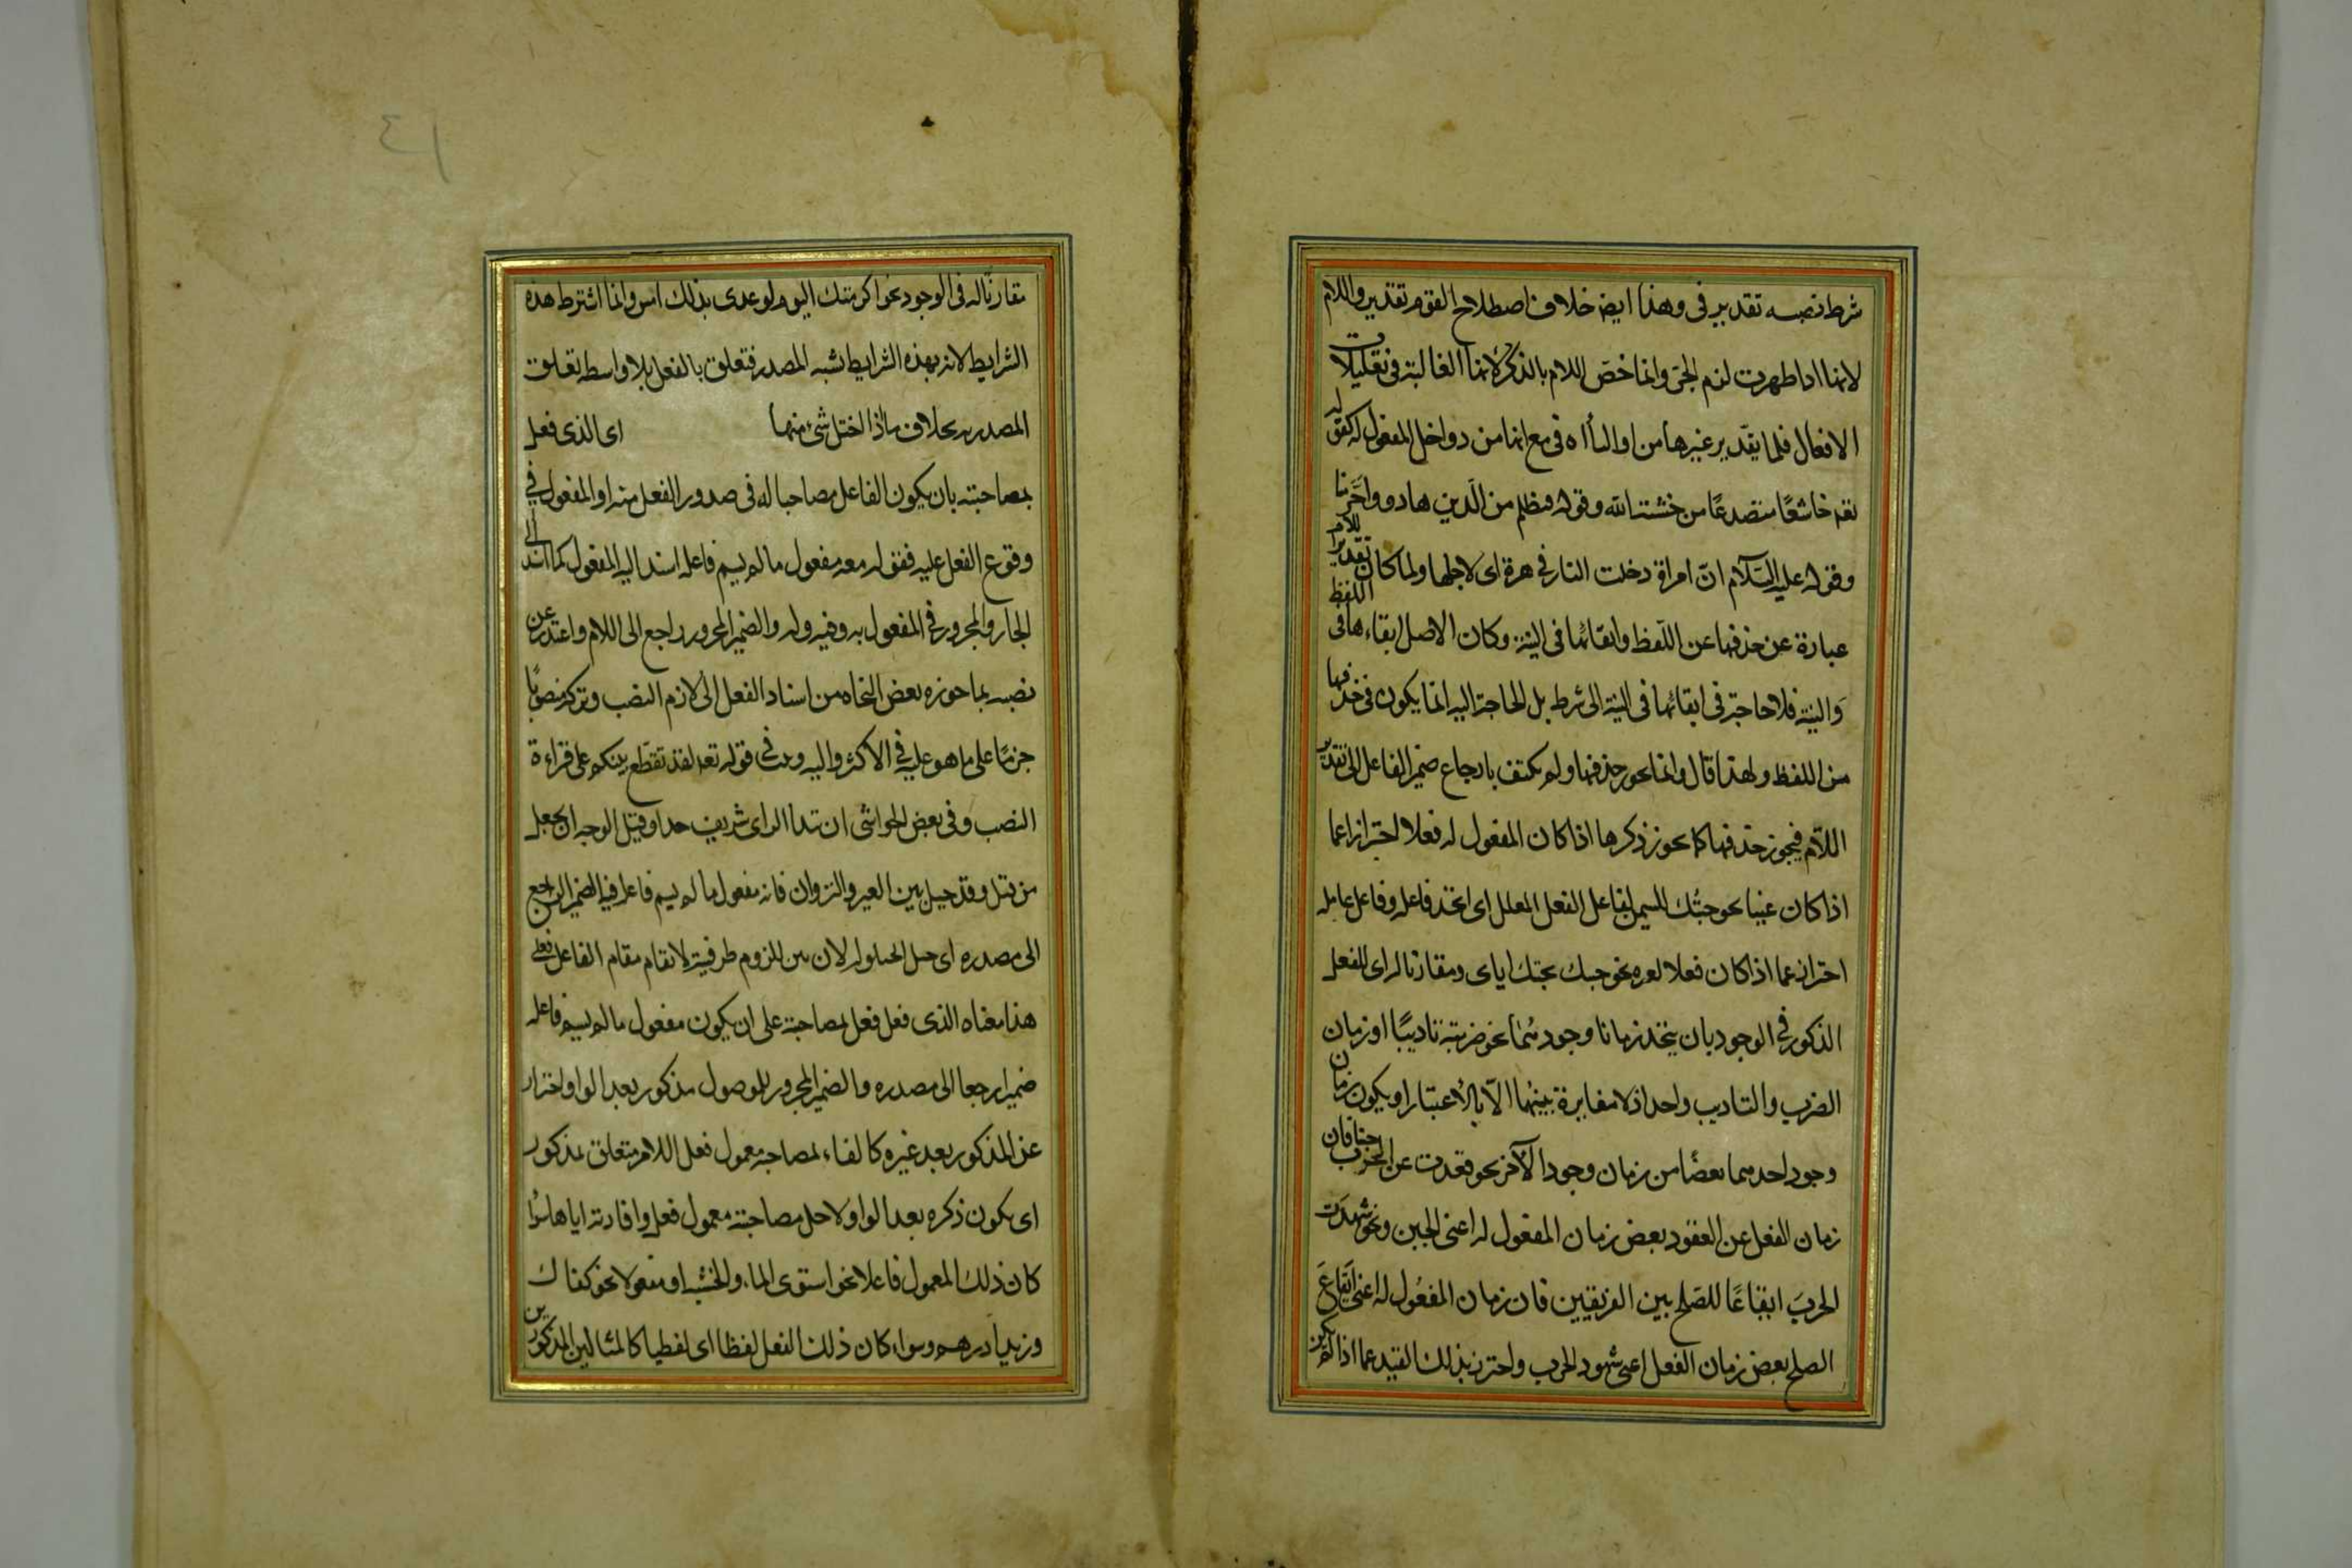 شرط نصبه تقدير في وهذا ايض خلاف اصطلاح القوم تقدير واللام
لانها اذا ظهرت لزم الجر وانما خص اللام بالذكر لانها الغالبة في تعليلات
الافعال فلما يقدير غيرها من او الباأ او في مع انها من دواخل المفعول له كقوله
تعه خاشعًا متصدعًا من خشية الله وقوله فبظلم من الذين هادوا وحرمنا
وقوله عليه السلام ان امراة دخلت النار في هرة اى لاجلها ولما كان تقدير اللام
عبارة عن حذفها عن اللفظ وابقائها في النية وكان الاصل ابقاءها في اللفظ
والنية فلا حاجة في ابقائها في النية الى شرط بل الحاجة اليه انما يكون في حذفها
من اللفظ ولهذا قال وانما يجوز حذفها ولم يكتف بارجاع ضمير الفاعل الى تقدير
اللام فيجوز حذفها كما يجوز ذكرها اذا كان المفعول له فعلا احترازا عما
اذا كان عينا نحو جئتك للسمن لفاعل الفعل المعلل اى اتحد فاعله وفاعل عامله
احتراز عما اذا كان فعلا لغيره نحو جئتك بمجيئك اياى ومقارنا له اى للفعل
المذكور في الوجود بان يتحد زمانا وجودهما نحو ضربته تاديبًا اذ زمان
الضرب والتاديب واحد اذ لا مغايرة بينهما الا بالاعتبار او يكون زمان
وجود احدهما بعضًا من زمان وجود الآخر نحو قعدت عن الحرب جبنا فان
زمان الفعل عن القعود بعض زمان المفعول له اعنى الجبن ونحو شهدت
الحرب ايقاعًا للصلح بين الفريقين فان زمان المفعول له اعنى ايقاع
الصلح بعض زمان الفعل اعنى شهود الحرب واحترز بذلك القيد عما اذا لم يكن
١٤
مقارنا له في الوجود نحو اكرمتك اليوم لوعدى بذلك امس وانما اشترط هذه
الشرايط لانه بهذه الشرايط يشبه المصدر فتعلق بالفعل بلا واسطة تعلق
المصدر به بخلاف ما اذا اختل شئ منها اى الذى فعل
بمصاحبته بان يكون الفاعل مصاحبا له في صدور الفعل منه او المفعول في
وقوع الفعل عليه فقوله معه مفعول ما لم يسم فاعله اسند اليه المفعول كما اسند الى
الجار والمجرور في المفعول به وفيه وله والضمير المجرور راجع الى اللام واعتذر عن
نصبه بما جوزه بعض النحاة من اسناد الفعل الى لازم النصب وتركه منصوبًا
جريًا على ما هو عليه في الاكثر واليه في قوله تعه لقد تقطع بينكم على قراءة
النصب وفي بعض الحواشى ان هذا الراى شريف جدا وقيل الوجه ان يجعل
من قبيل وقد حيل بين العير والنزوان فان مفعول ما لم يسم فاعله فيه الضمير الراجع
الى مصدره اى حيل الحيلولة لان بين للزوم ظرفيته لا يقام مقام الفاعل فعلى
هذا معناه الذى فعل فعل بمصاحبته على ان يكون مفعول ما لم يسم فاعله
ضميرا راجعا الى مصدره والضمير المجرور للموصول مذكور بعد الواو احتراز
عن المذكور بعد غيره كالفاء لمصاحبة معمول فعل اللام متعلق بمذكور
اى يكون ذكره بعد الواو لاجل مصاحبته معمول فعل وافادته اياها سواء
كان ذلك المعمول فاعلا نحو استوى الماء والخشبة او مفعولا نحو كفاك
وزيدا درهم وسواء كان ذلك الفعل لفظا اى لفظيا كالمثالين المذكورين